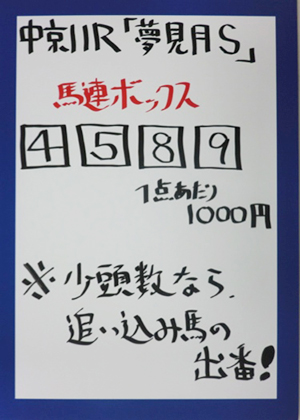 中京11R「夢見月S」
馬連ボックス
4 5 8 9
1点あたり
1000円
※少頭数なら、
追い込み馬の
出番!